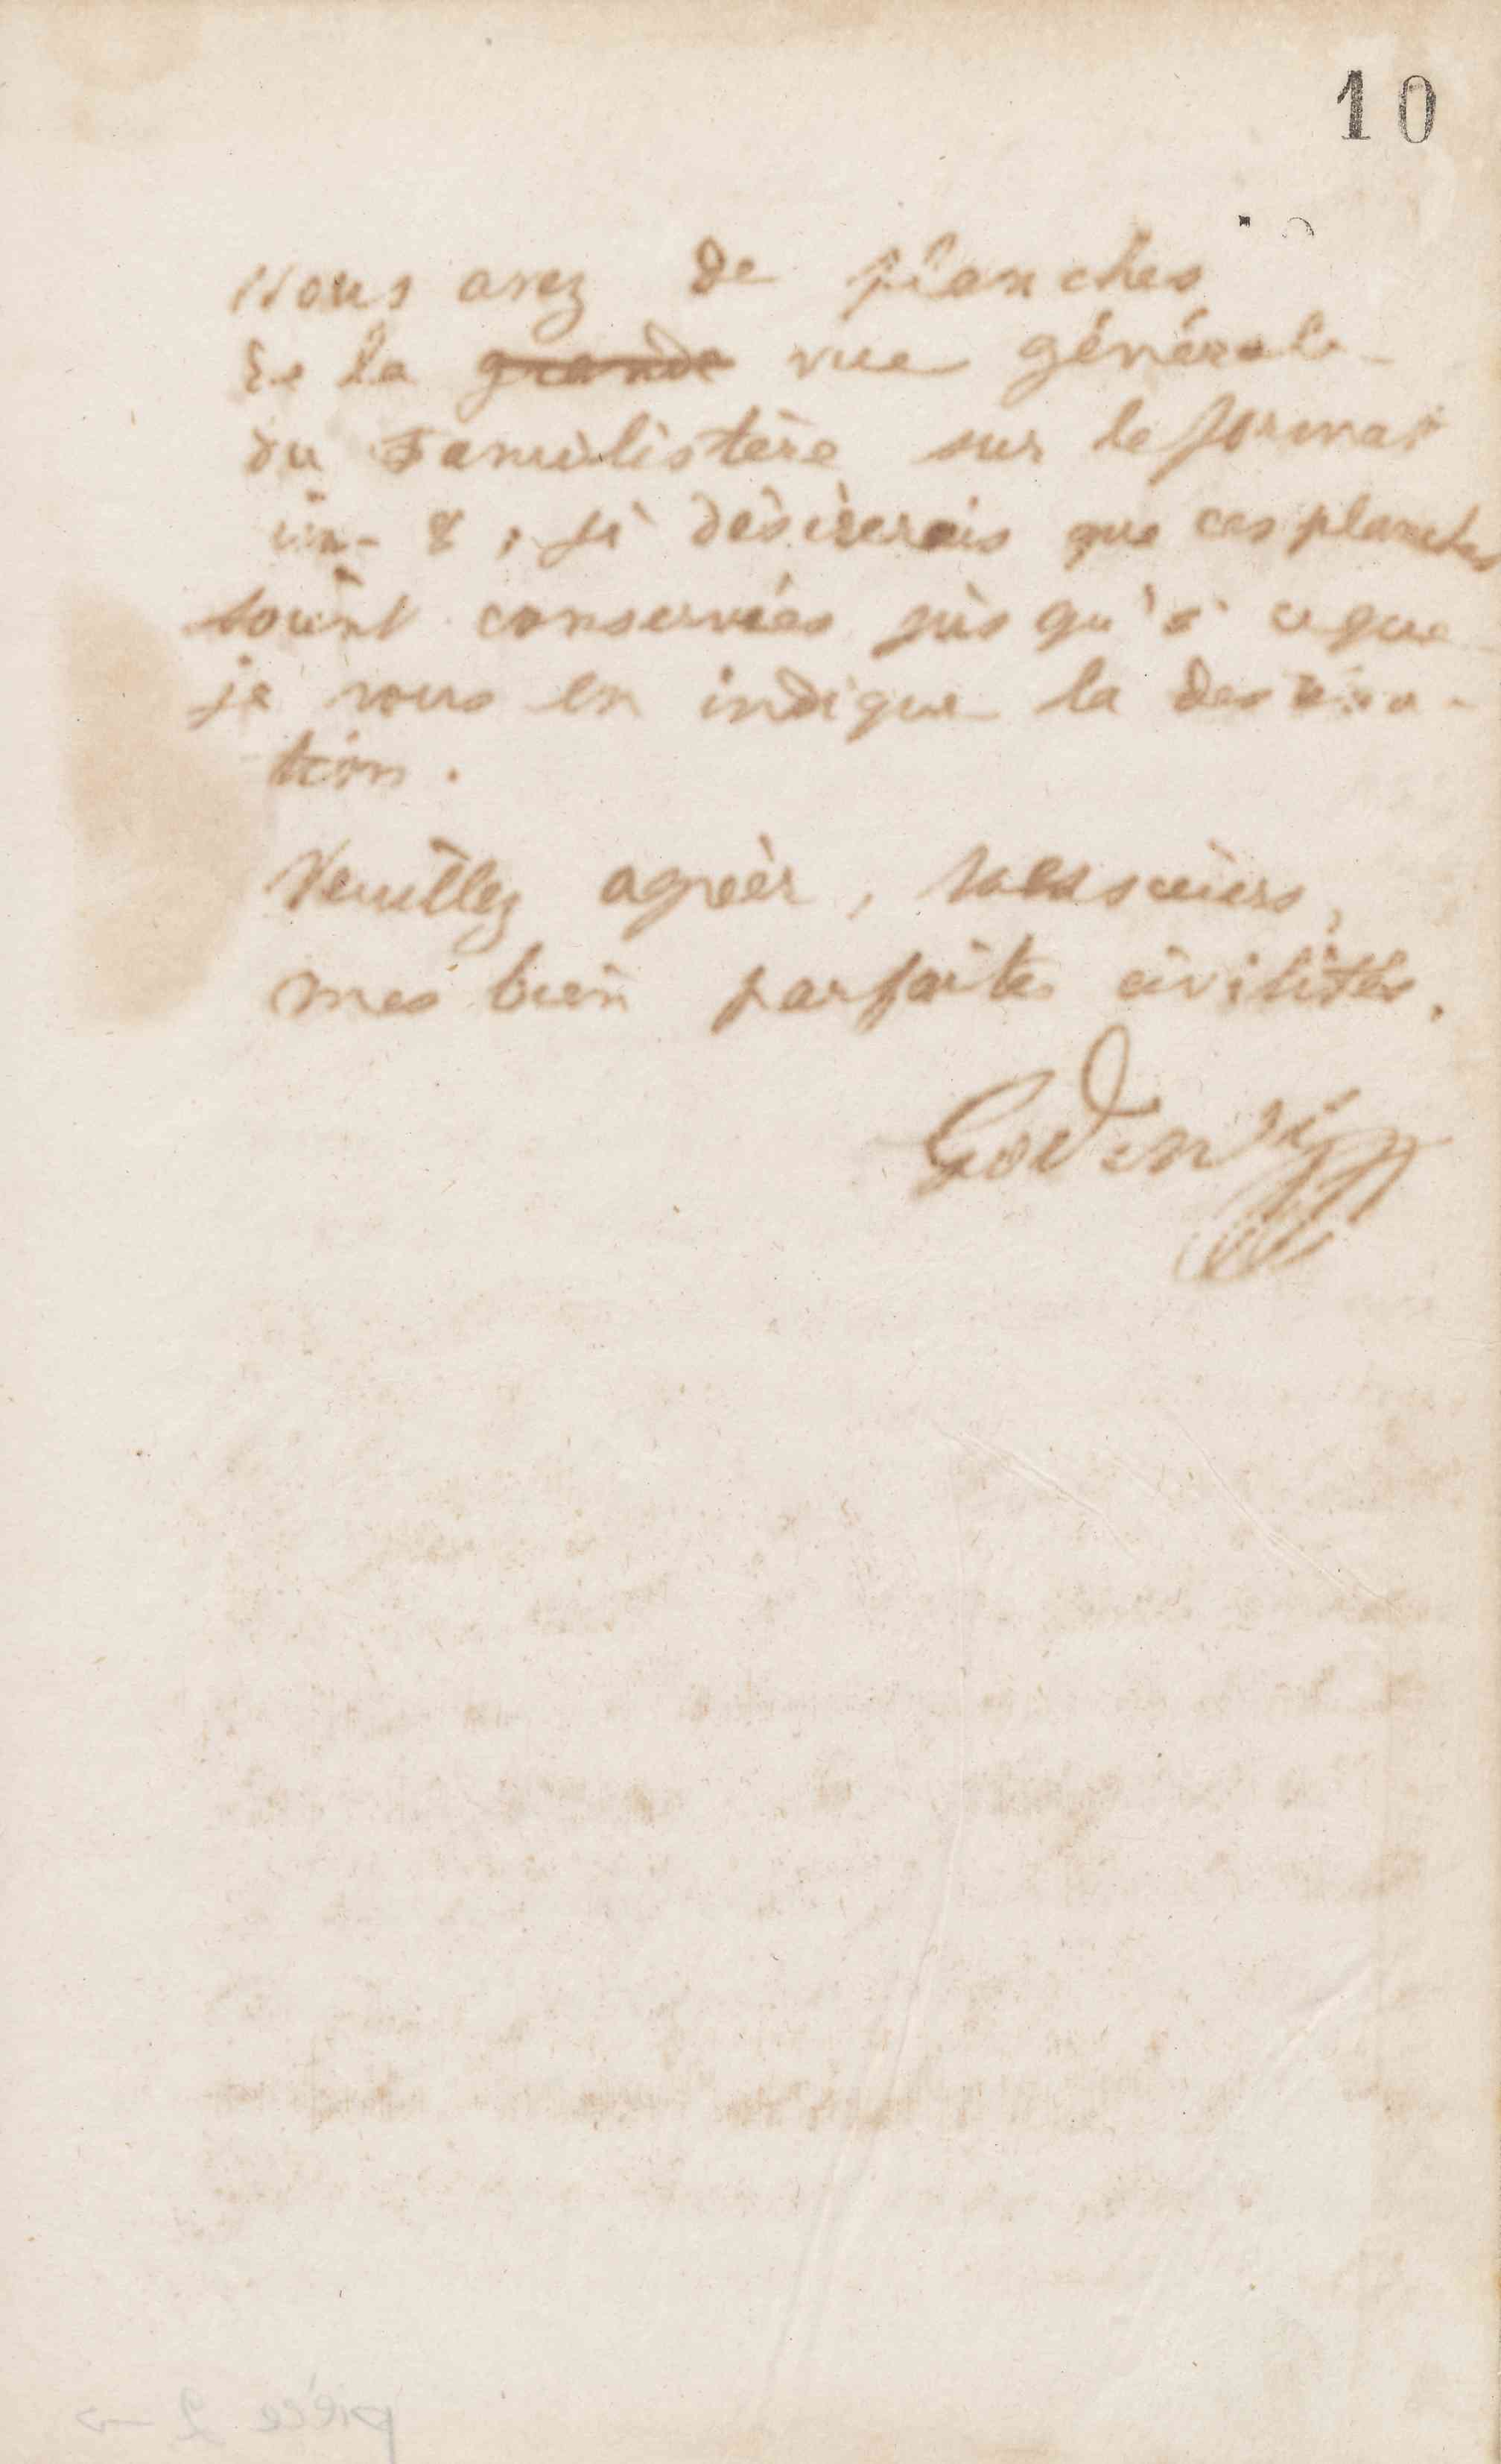 10
vous avez de planches
de la grande vue générale
du Familistère sur le format
in-8, je désirerais que ces planches
soient conservées jusqu'à ce que
je vous en indique la destina-
tion.
Veuillez agréer, Messieurs,
mes bien parfaites civilités.
Godin
pièce 2